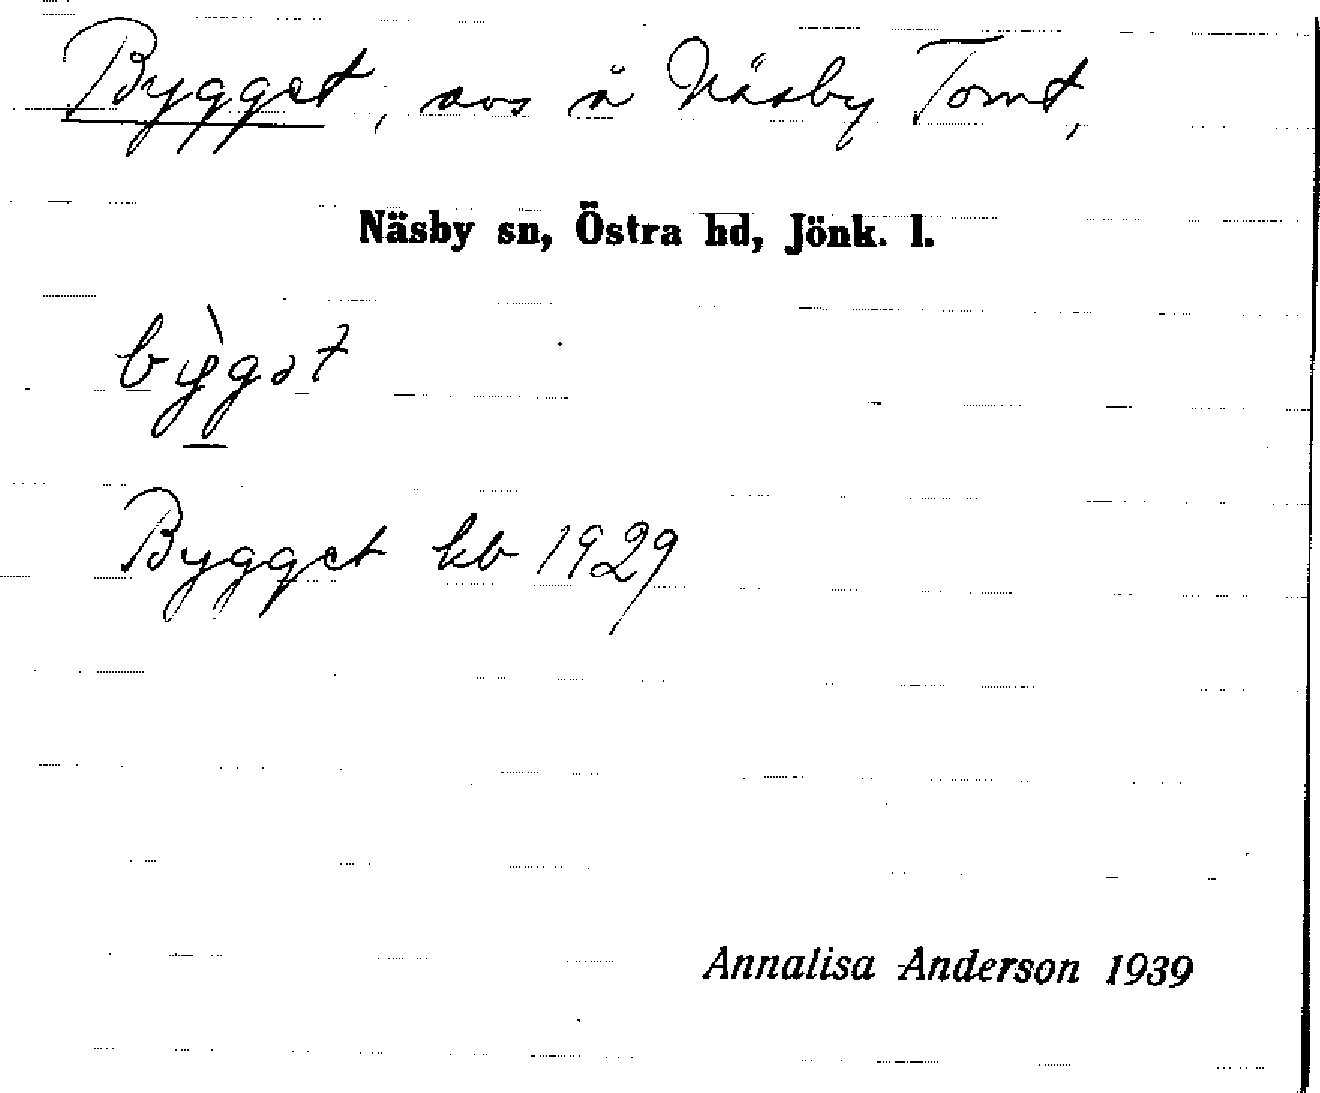 Bygget, avs å Näsby Tomt,
Näsby sn, Östra hd, Jönk. l.
bỳgət
Bygget kb 1929
Annalisa Anderson 1939